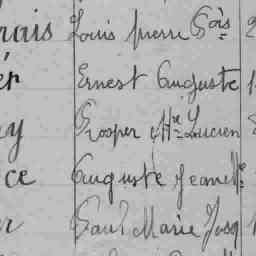 rais Louis pierre Çois 2
én Ernest Auguste
y Prosper Hte Lucien
ce Auguste Jeanette
r Paul Marie Josq